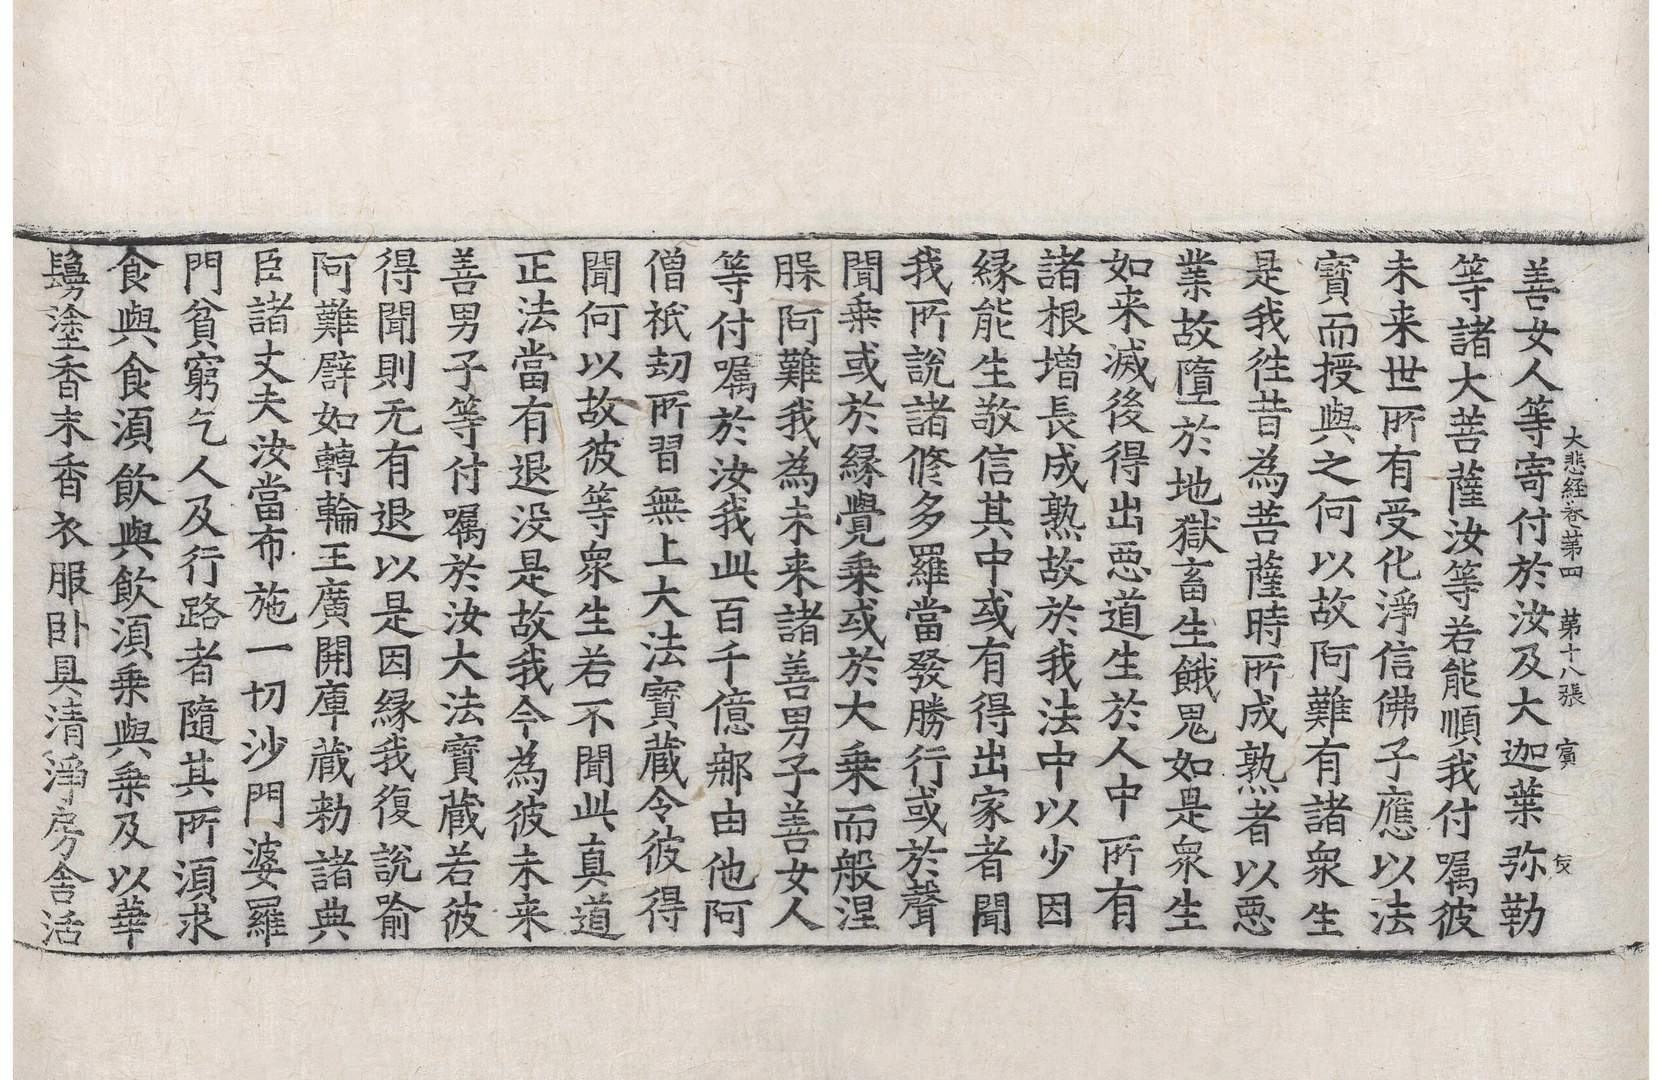 大悲経卷第四 第十八張 寅
善女人等寄付於汝及大迦葉弥勒
等諸大菩薩汝等若能順我付嘱彼
未来世所有受化淨信佛子應以法
寶而授與之何以故阿難有諸衆生
是我徃昔為菩薩時所成熟者以惡
業故墮於地獄畜生餓鬼如是衆生
如来滅後得出惡道生於人中所有
諸根增長成熟故於我法中以少因
縁能生敬信其中或有得出家者聞
我所說諸修多羅當發勝行或於聲
聞乗或於縁覺乗或於大乗而般涅
槃阿難我為未来諸善男子善女人
等付嘱於汝我此百千億那由他阿
僧祇劫所習無上大法寶蔵令彼得
聞何以故彼等衆生若不聞此真道
正法當有退没是故我今為彼未来
善男子等付嘱於汝大法寶蔵若彼
得聞則无有退以是因縁我復說喻
阿難譬如轉輪王廣開庫蔵勑諸典
臣諸丈夫汝當布施一切沙門婆羅
門貧窮乞人及行路者隨其所湏求
食與食湏飲與飲湏乗與乗及以華
鬘塗香末香衣服卧具清淨房舍活